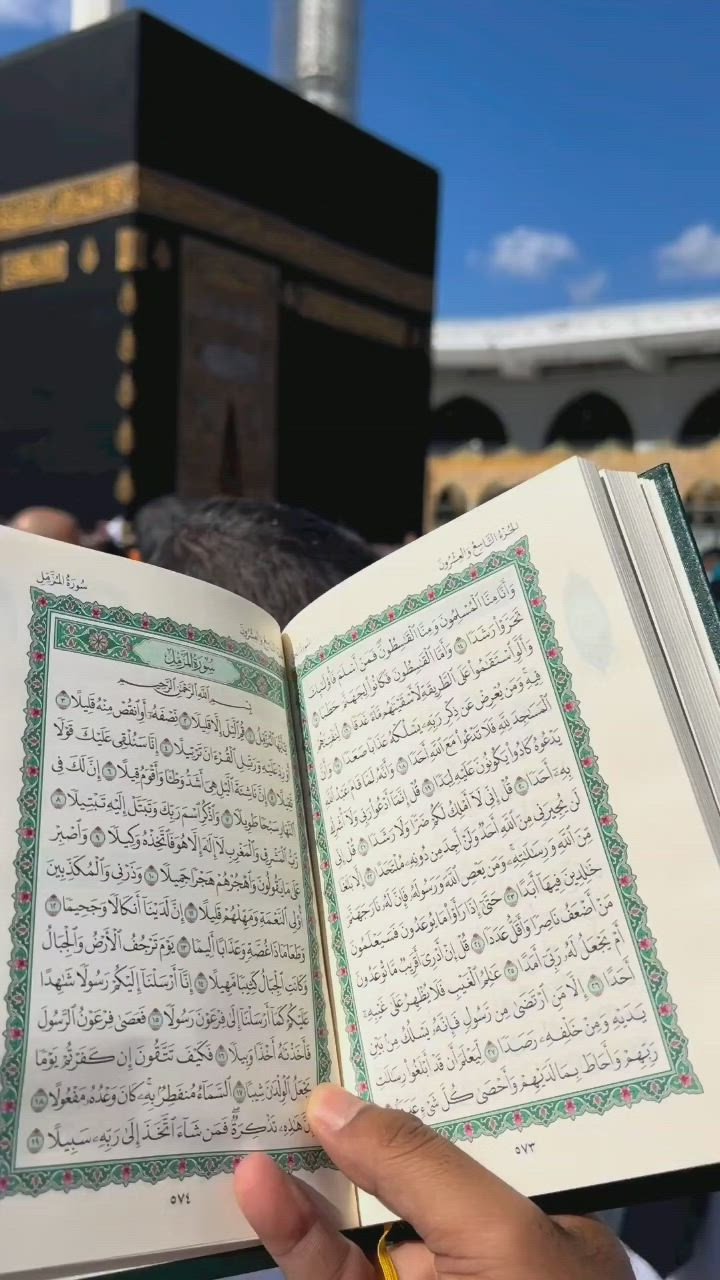 الجُزْءُ التَّاسِعُ وَالعِشْرُونَ
وَأَنَّا مِنَّا ٱلْمُسْلِمُونَ وَمِنَّا ٱلْقَٰسِطُونَۖ فَمَنْ أَسْلَمَ فَأُو۟لَٰٓئِكَ
تَحَرَّوْا۟ رَشَدًا ١٤ وَأَمَّا ٱلْقَٰسِطُونَ فَكَانُوا۟ لِجَهَنَّمَ حَطَبًا ١٥
وَأَلَّوِ ٱسْتَقَٰمُوا۟ عَلَى ٱلطَّرِيقَةِ لَأَسْقَيْنَٰهُم مَّآءً غَدَقًا ١٦ لِّنَفْتِنَهُمْ
فِيهِۚ وَمَن يُعْرِضْ عَن ذِكْرِ رَبِّهِۦ يَسْلُكْهُ عَذَابًا صَعَدًا ١٧ وَأَنَّ
ٱلْمَسَٰجِدَ لِلَّهِ فَلَا تَدْعُوا۟ مَعَ ٱللَّهِ أَحَدًا ١٨ وَأَنَّهُۥ لَمَّا قَامَ عَبْدُ ٱللَّهِ
يَدْعُوهُ كَادُوا۟ يَكُونُونَ عَلَيْهِ لِبَدًا ١٩ قُلْ إِنَّمَآ أَدْعُوا۟ رَبِّى وَلَآ أُشْرِكُ
بِهِۦٓ أَحَدًا ٢٠ قُلْ إِنِّى لَآ أَمْلِكُ لَكُمْ ضَرًّا وَلَا رَشَدًا ٢١ قُلْ إِنِّى
لَن يُجِيرَنِى مِنَ ٱللَّهِ أَحَدٌ وَلَنْ أَجِدَ مِن دُونِهِۦ مُلْتَحَدًا ٢٢ إِلَّا بَلَٰغًا
مِّنَ ٱللَّهِ وَرِسَٰلَٰتِهِۦۚ وَمَن يَعْصِ ٱللَّهَ وَرَسُولَهُۥ فَإِنَّ لَهُۥ نَارَ جَهَنَّمَ
خَٰلِدِينَ فِيهَآ أَبَدًا ٢٣ حَتَّىٰٓ إِذَا رَأَوْا۟ مَا يُوعَدُونَ فَسَيَعْلَمُونَ
مَنْ أَضْعَفُ نَاصِرًا وَأَقَلُّ عَدَدًا ٢٤ قُلْ إِنْ أَدْرِىٓ أَقَرِيبٌ مَّا تُوعَدُونَ
أَمْ يَجْعَلُ لَهُۥ رَبِّىٓ أَمَدًا ٢٥ عَٰلِمُ ٱلْغَيْبِ فَلَا يُظْهِرُ عَلَىٰ غَيْبِهِۦٓ
أَحَدًا ٢٦ إِلَّا مَنِ ٱرْتَضَىٰ مِن رَّسُولٍ فَإِنَّهُۥ يَسْلُكُ مِنۢ بَيْنِ
يَدَيْهِ وَمِنْ خَلْفِهِۦ رَصَدًا ٢٧ لِّيَعْلَمَ أَن قَدْ أَبْلَغُوا۟ رِسَٰلَٰتِ
رَبِّهِمْ وَأَحَاطَ بِمَا لَدَيْهِمْ وَأَحْصَىٰ كُلَّ شَىْءٍ
٥٧٣
سُورَةُ المُزَّمِّلِ
سُورَةُ المُزَّمِّلِ
بِسْمِ ٱللَّهِ ٱلرَّحْمَٰنِ ٱلرَّحِيمِ
يَٰٓأَيُّهَا ٱلْمُزَّمِّلُ ١ قُمِ ٱلَّيْلَ إِلَّا قَلِيلًا ٢ نِّصْفَهُۥٓ أَوِ ٱنقُصْ مِنْهُ قَلِيلًا ٣
أَوْ زِدْ عَلَيْهِ وَرَتِّلِ ٱلْقُرْءَانَ تَرْتِيلًا ٤ إِنَّا سَنُلْقِى عَلَيْكَ قَوْلًا
ثَقِيلًا ٥ إِنَّ نَاشِئَةَ ٱلَّيْلِ هِىَ أَشَدُّ وَطْـًٔا وَأَقْوَمُ قِيلًا ٦ إِنَّ لَكَ فِى
ٱلنَّهَارِ سَبْحًا طَوِيلًا ٧ وَٱذْكُرِ ٱسْمَ رَبِّكَ وَتَبَتَّلْ إِلَيْهِ تَبْتِيلًا ٨
رَّبُّ ٱلْمَشْرِقِ وَٱلْمَغْرِبِ لَآ إِلَٰهَ إِلَّا هُوَ فَٱتَّخِذْهُ وَكِيلًا ٩ وَٱصْبِرْ
عَلَىٰ مَا يَقُولُونَ وَٱهْجُرْهُمْ هَجْرًا جَمِيلًا ١٠ وَذَرْنِى وَٱلْمُكَذِّبِينَ
أُو۟لِى ٱلنَّعْمَةِ وَمَهِّلْهُمْ قَلِيلًا ١١ إِنَّ لَدَيْنَآ أَنكَالًا وَجَحِيمًا ١٢
وَطَعَامًا ذَا غُصَّةٍ وَعَذَابًا أَلِيمًا ١٣ يَوْمَ تَرْجُفُ ٱلْأَرْضُ وَٱلْجِبَالُ
وَكَانَتِ ٱلْجِبَالُ كَثِيبًا مَّهِيلًا ١٤ إِنَّآ أَرْسَلْنَآ إِلَيْكُمْ رَسُولًا شَٰهِدًا
عَلَيْكُمْ كَمَآ أَرْسَلْنَآ إِلَىٰ فِرْعَوْنَ رَسُولًا ١٥ فَعَصَىٰ فِرْعَوْنُ ٱلرَّسُولَ
فَأَخَذْنَٰهُ أَخْذًا وَبِيلًا ١٦ فَكَيْفَ تَتَّقُونَ إِن كَفَرْتُمْ يَوْمًا
يَجْعَلُ ٱلْوِلْدَٰنَ شِيبًا ١٧ ٱلسَّمَآءُ مُنفَطِرٌۢ بِهِۦۚ كَانَ وَعْدُهُۥ مَفْعُولًا ١٨
هَٰذِهِۦ تَذْكِرَةٌۖ فَمَن شَآءَ ٱتَّخَذَ إِلَىٰ رَبِّهِۦ سَبِيلًا ١٩
٥٧٤